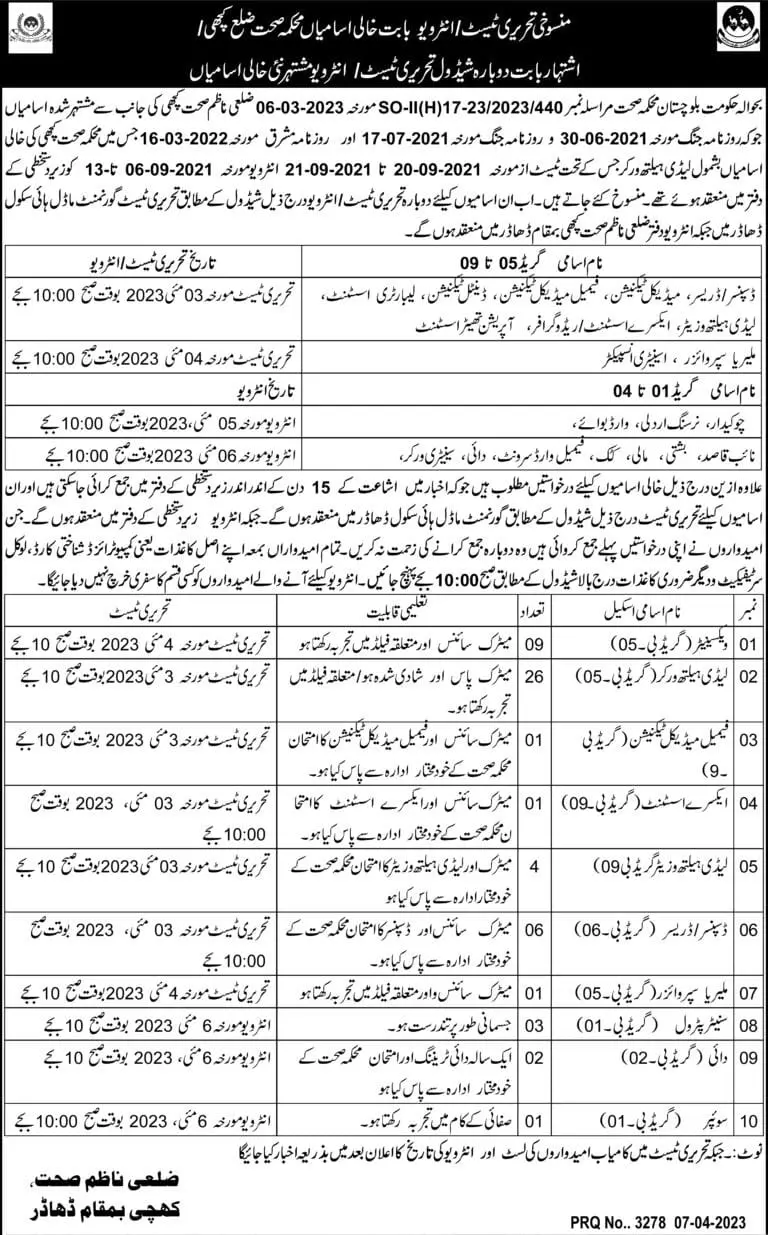 منسوخی تحریری ٹیسٹ/انٹرویو بابت خالی اسامیاں محکمہ صحت ضلع کچھی/
اشتہار بابت دوبارہ شیڈول تحریری ٹیسٹ/ انٹرویو مشتہر نئی خالی اسامیاں
بحوالہ حکومت بلوچستان محکمہ صحت مراسلہ نمبر SO-II(H)17-23/2023/440 مورخہ 06-03-2023 ضلعی ناظم صحت کچھی کی جانب سے مشتہر شدہ اسامیاں
جو کہ روزنامہ جنگ مورخہ 30-06-2021 و روزنامہ جنگ مورخہ 17-07-2021 اور روزنامہ مشرق مورخہ 16-03-2022 جس میں محکمہ صحت کچھی کی خالی
اسامیاں بشمول لیڈی ہیلتھ ورکر جس کے تحت ٹیسٹ از مورخہ 20-09-2021 تا 21-09-2021 انٹرویو مورخہ 06-09-2021 تا 13 کو زیر دستخطی کے
دفتر میں منعقد ہوئے تھے۔ منسوخ کئے جاتے ہیں۔ اب ان اسامیوں کیلئے دوبارہ تحریری ٹیسٹ/انٹرویو درج ذیل شیڈول کے مطابق تحریری ٹیسٹ گورنمنٹ ماڈل ہائی سکول
ڈھاڈر میں جبکہ انٹرویو دفتر ضلعی ناظم صحت کچھی بمقام ڈھاڈر میں منعقد ہوں گے۔
نام اسامی گریڈ 05 تا 09 تاریخ تحریری ٹیسٹ/انٹرویو
ڈسپنسر/ڈریسر، میڈیکل ٹیکنیشن، فیمیل میڈیکل ٹیکنیشن، ڈینٹل ٹیکنیشن، لیبارٹری اسسٹنٹ، تحریری ٹیسٹ مورخہ 03 مئی 2023 بوقت صبح 10:00 بجے
لیڈی ہیلتھ وزیٹر، ایکسرے اسسٹنٹ/ریڈوگرافر، آپریشن تھیٹر اسسٹنٹ
ملیریا سپروائزر، اسینیٹری انسپکٹر تحریری ٹیسٹ مورخہ 04 مئی 2023 بوقت صبح 10:00 بجے
نام اسامی گریڈ 01 تا 04 تاریخ انٹرویو
چوکیدار، نرسنگ اردلی، وارڈ بوائے، انٹرویو مورخہ 05 مئی، 2023 بوقت صبح 10:00 بجے
نائب قاصد، بشتی، مالی، کک، فیمیل وارڈ سرونٹ، دائی، سینیٹری ورکر، انٹرویو مورخہ 06 مئی 2023 بوقت صبح 10:00 بجے
علاوہ ازیں درج ذیل خالی اسامیوں کیلئے درخواستیں مطلوب ہیں جو کہ اخبار میں اشاعت کے 15 دن کے اندر اندر زیر دستخطی کے دفتر میں جمع کرائی جا سکتی ہیں اور ان
اسامیوں کیلئے تحریری ٹیسٹ درج ذیل شیڈول کے مطابق گورنمنٹ ماڈل ہائی سکول ڈھاڈر میں منعقد ہوں گے۔ جبکہ انٹرویو زیر دستخطی کے دفتر میں منعقد ہوں گے۔ جن
امیدواروں نے اپنی درخواستیں پہلے جمع کروائی ہیں وہ دوبارہ جمع کرانے کی زحمت نہ کریں۔ تمام امیدواراں بمعہ اپنے اصل کاغذات یعنی کمپیوٹرائزڈ شناختی کارڈ، لوکل
سرٹیفکیٹ و دیگر ضروری کاغذات درج بالا شیڈول کے مطابق صبح 10:00 بجے پہنچ جائیں۔ انٹرویو کیلئے آنے والے امیدواروں کو کسی قسم کا سفری خرچ نہیں دیا جائیگا۔
نمبر نام اسامی اسکیل تعداد تعلیمی قابلیت تحریری ٹیسٹ
01 ویکسینیٹر (گریڈ بی۔05) 09 میٹرک سائنس اور متعلقہ فیلڈ میں تجربہ رکھتا ہو تحریری ٹیسٹ مورخہ 4 مئی 2023 بوقت صبح 10 بجے
02 لیڈی ہیلتھ ورکر (گریڈ بی۔05) 26 میٹرک پاس اور شادی شدہ ہو/متعلقہ فیلڈ میں تحریری ٹیسٹ مورخہ 3 مئی 2023 بوقت صبح 10 بجے
تجربہ رکھتا ہو۔
03 فیمیل میڈیکل ٹیکنیشن (گریڈ بی 01 میٹرک سائنس اور فیمیل میڈیکل ٹیکنیشن کا امتحان تحریری ٹیسٹ مورخہ 3 مئی 2023 بوقت صبح 10 بجے
۔9) محکمہ صحت کے خود مختار ادارہ سے پاس کیا ہو۔
04 ایکسرے اسسٹنٹ (گریڈ بی۔09) 01 میٹرک سائنس اور ایکسرے اسسٹنٹ کا امتحا تحریری ٹیسٹ مورخہ 03 مئی، 2023 بوقت صبح
ن محکمہ صحت کے خود مختار ادارہ سے پاس کیا ہو۔ 10:00 بجے
05 لیڈی ہیلتھ وزیٹر گریڈ بی 09) 4 میٹرک اور لیڈی ہیلتھ وزیٹر کا امتحان محکمہ صحت کے تحریری ٹیسٹ مورخہ 03 مئی 2023 بوقت صبح 10 بجے
خود مختار ادارہ سے پاس کیا ہو
06 ڈسپنسر/ڈریسر (گریڈ بی۔06) 06 میٹرک سائنس اور ڈسپنسر کا امتحان محکمہ صحت کے تحریری ٹیسٹ مورخہ 03 مئی، 2023 بوقت صبح
خود مختار ادارہ سے پاس کیا ہو۔ 10:00 بجے
07 ملیریا سپروائزر (گریڈ بی۔05) 01 میٹرک سائنس و اور متعلقہ فیلڈ میں تجربہ رکھتا ہو تحریری ٹیسٹ مورخہ 4 مئی 2023 بوقت صبح 10 بجے
08 سنیٹر پٹرول (گریڈ بی۔01) 03 جسمانی طور پر تندرست ہو۔ انٹرویو مورخہ 6 مئی 2023 بوقت صبح 10 بجے
09 دائی (گریڈ بی۔02) 02 ایک سالہ دائی ٹریننگ اور امتحان محکمہ صحت کے انٹرویو مورخہ 6 مئی، 2023 بوقت صبح 10 بجے
خود مختار ادارہ سے پاس کیا ہو
10 سوئپر (گریڈ بی۔01) 01 صفائی کے کام میں تجربہ رکھتا ہو۔ انٹرویو مورخہ 6 مئی، 2023 بوقت صبح 10:00 بجے
نوٹ:۔ جبکہ تحریری ٹیسٹ میں کامیاب امیدواروں کی لسٹ اور انٹرویو کی تاریخ کا اعلان بعد میں بذریعہ اخبار کیا جائیگا
ضلعی ناظم صحت،
کچھی بمقام ڈھاڈر
PRQ No.. 3278 07-04-2023